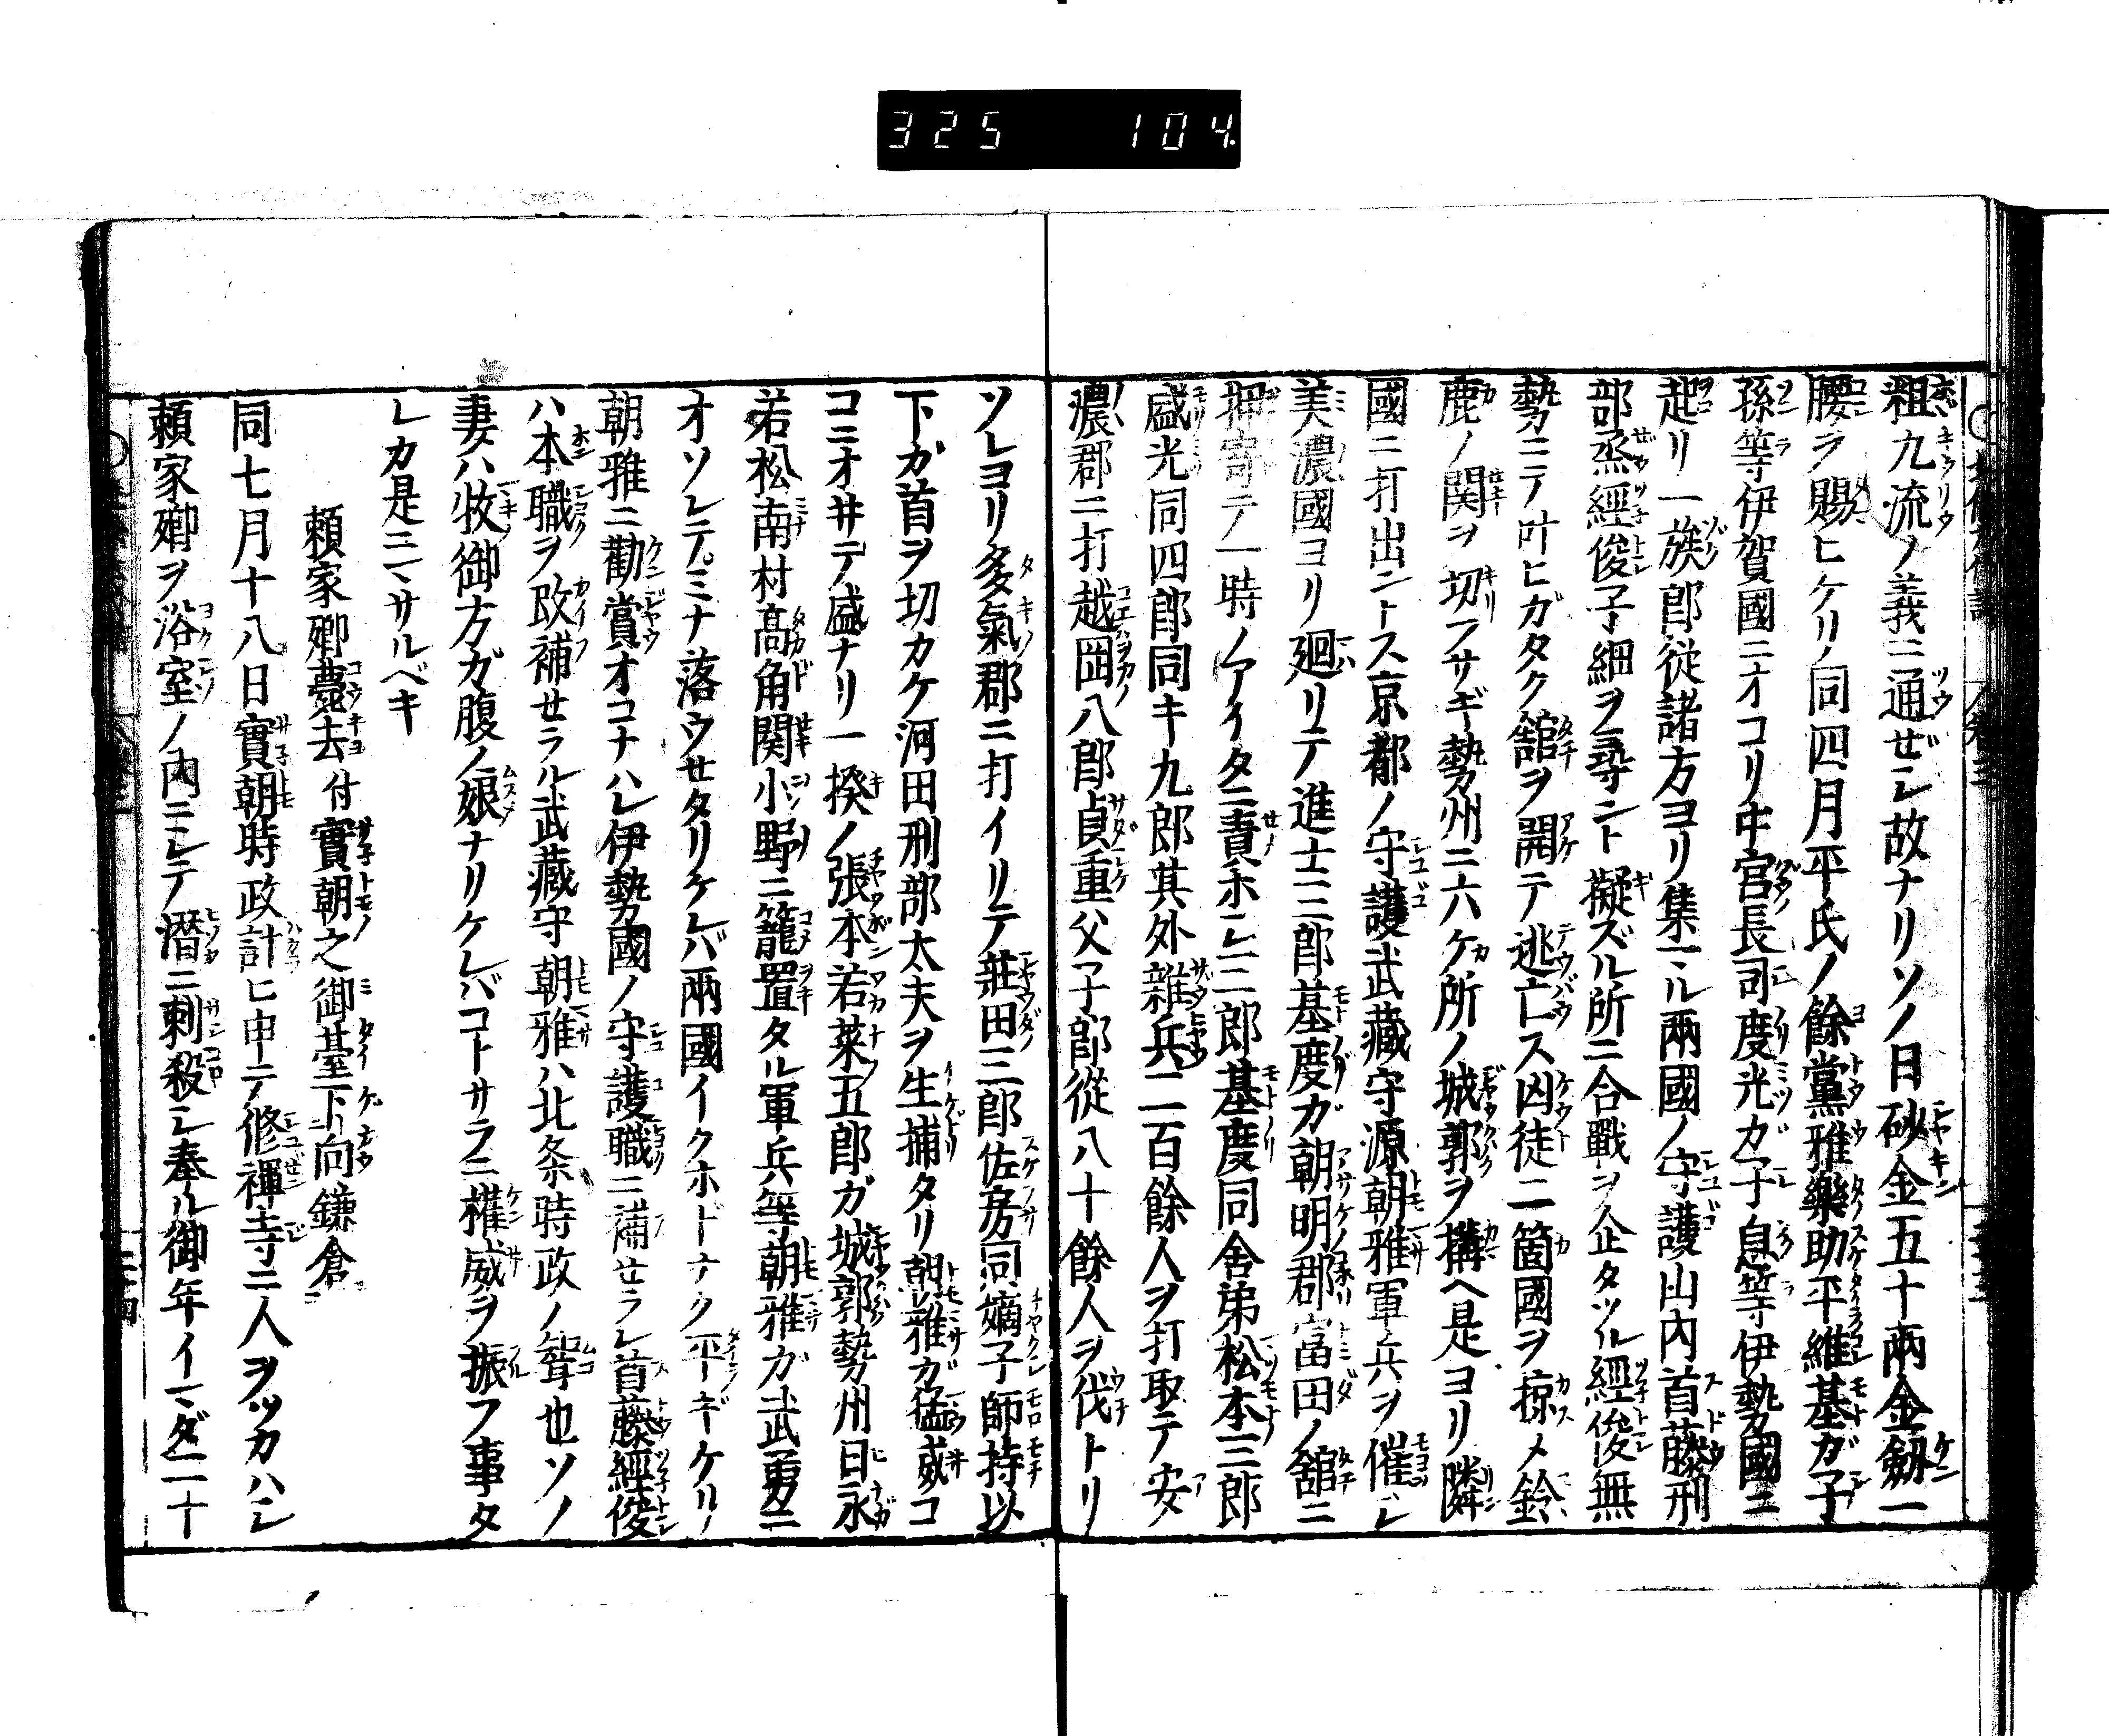 325 104
粗九流ノ義ニ通ゼシ故ナリソノ日砂金五十兩金劔一
腰ヲ賜ヒケリ同四月平氏ノ餘黨雅樂助平維基ガ子
孫等伊賀國ニオコリ中宮長司度光ガ子息等伊勢國ニ
起リ一族郎從諸方ヨリ集マル兩國ノ守護山内首藤刑
部丞經俊子細ヲ尋ニト擬ズル所ニ合戰ヲ企タツル經俊無
勢ニテ叶ヒガタク舘ヲ開テ逃亡ス凶徒二箇國ヲ掠メ鈴
鹿ノ関ヲ切フサギ勢州ニ六ケ所ノ城郭ヲ搆へ是ヨリ隣
國ニ打出ントス京都ノ守護武藏守源朝雅軍兵ヲ催シ
美濃國ヨリ廻リテ進士三郎基度ガ朝明郡富田ノ舘ニ
押寄テ一時ノアイタニ責ホシ三郎基度同舎弟松本三郎
盛光同四郎同キ九郎其外雜兵二百餘人ヲ打取テ安
濃郡ニ打越岡八郎貞重父子郎從八十餘人ヲ伐トリ
ソレヨリ多氣郡ニ打イリテ莊田三郎佐房同嫡子師持以
下ガ首ヲ切カケ河田刑部太夫ヲ生捕タリ朝雅ガ猛威コ
コニオヰテ盛ナリ一揆ノ張本若菜五郎ガ城郭勢州日永
若松南村髙角関小野ニ籠置タル軍兵等朝雅ガ武勇ニ
オソレテミナ落ウセタリケレバ兩國イクホドナク平ギケリ
朝雅ニ勸賞オコナハレ伊勢國ノ守護職ニ補セラレ首藤經俊
ハ本職ヲ改補セラル武藏守朝雅ハ北条時政ノ聟也ソノ
妻ハ牧御方ガ腹ノ娘ナリケレバコトサラニ權威ヲ振フ事タ
レカ是ニマサルベキ
賴家卿薨去付實朝之御臺下向鎌倉
同七月十八日實朝時政計ヒ申テ修禪寺ニ人ヲツカハシ
賴家卿ヲ浴室ノ内ニシテ潜ニ刺殺シ奉ル御年イマダ二十